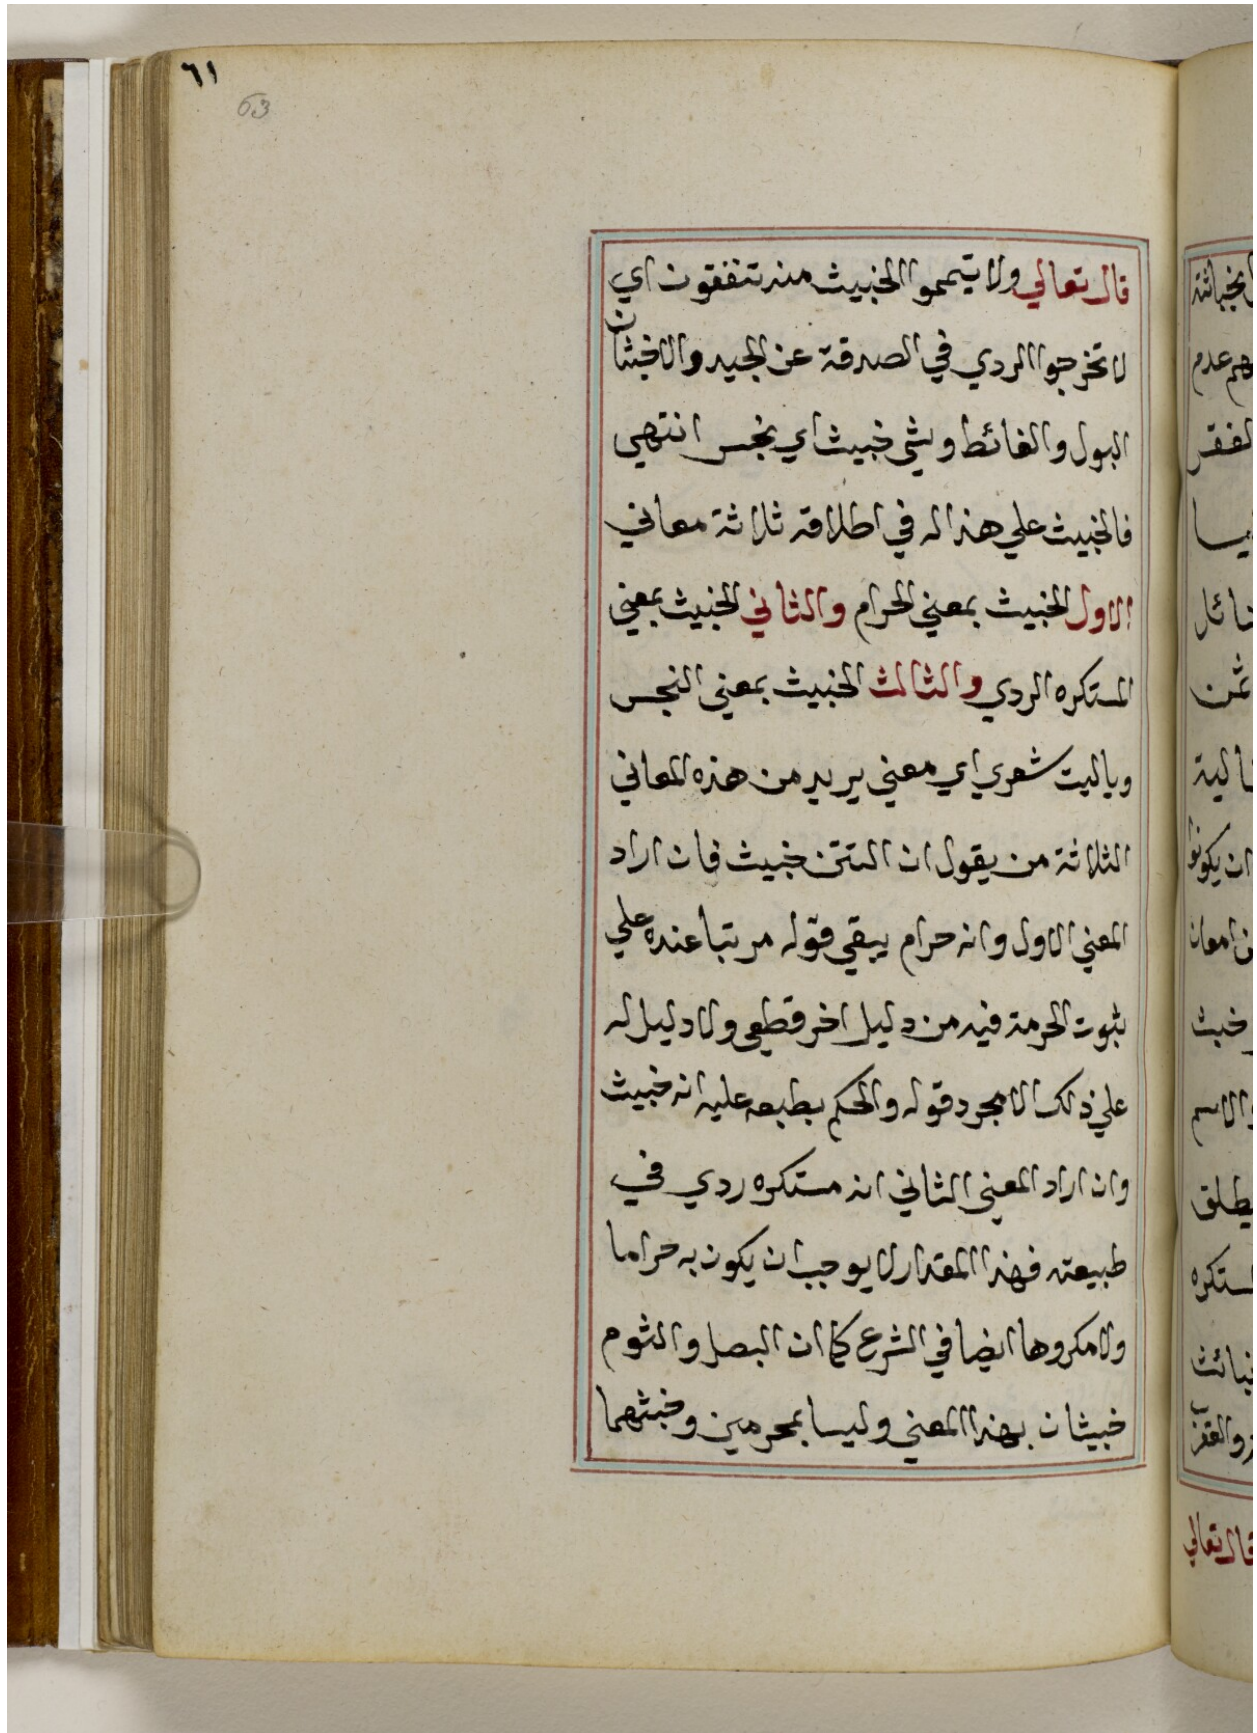 ٦١
63
قال تعالي ولا تيمموا الخبيث منه تنفقون اي
لا تخرجوا الردي في الصدقة عن الجيد والاخبثان
البول والغائط وشي خبيث اي نجس انتهي
فالخبيث علي هذا له في اطلاقه ثلاثة معاني
الاول الخبيث بمعني الحرام والثاني الخبيث بمعني
المستكره الردي والثالث الخبيث بمعني النجس
وياليت شعري اي معني يريد من هذه المعاني
الثلاثة من يقول ان التتن خبيث فان اراد
المعني الاول وانه حرام يبقي قوله مرتبا عنده علي
ثبوت الحرمة فيه من دليل اخر قطعي ولا دليل له
علي ذلك الا مجرد قوله والحكم بطبعه عليه انه خبيث
وان اراد المعني الثاني انه مستكره ردي في
طبيعته فهذا المقدار لا يوجب ان يكون به حراما
ولا مكروها ايضا في الشرع كما ان البصل والثوم
خبيثان بهذا المعني وليسا بمحرمين وخبثهما
هم عدم
الفقر
ثمن
ان يكونوا
خبث
والاسم
يطلق
قال تعالي